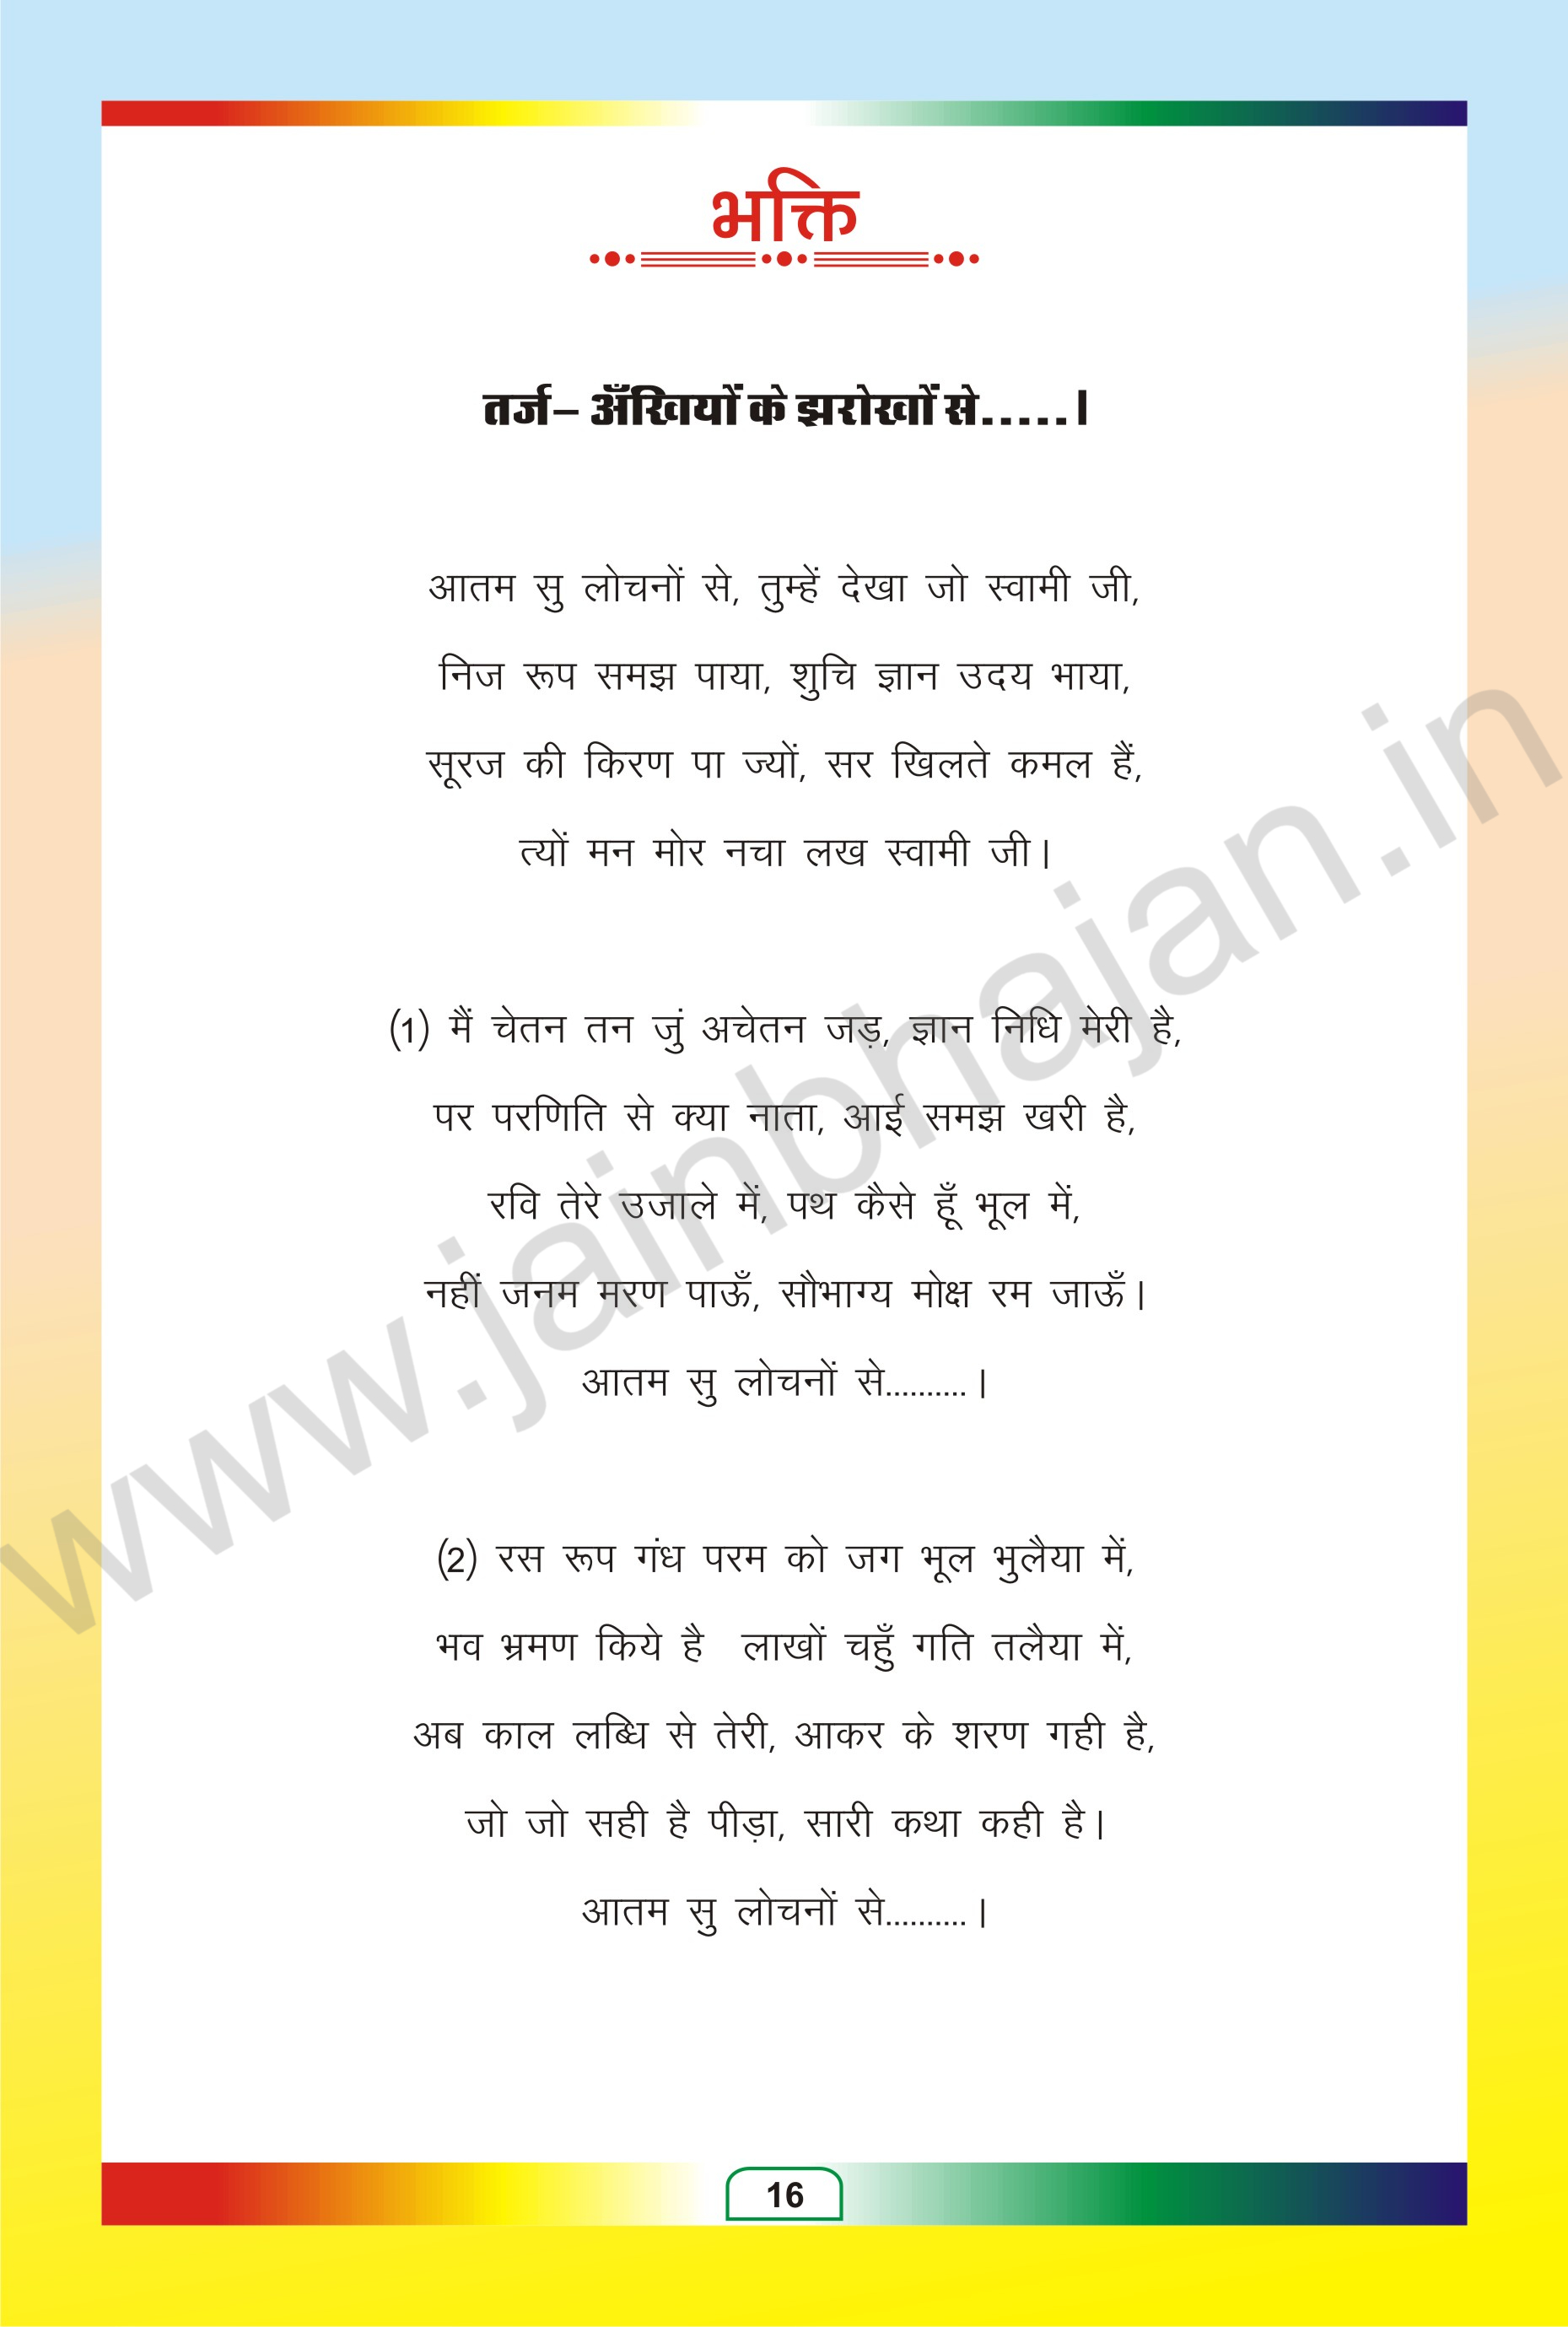 भक्ति
तर्ज– अँखियों के झरोखों से.....।
आतम सु लोचनों से, तुम्हें देखा जो स्वामी जी,
निज रूप समझ पाया, शुचि ज्ञान उदय भाया,
सूरज की किरण पा ज्यों, सर खिलते कमल हैं,
त्यों मन मोर नचा लख स्वामी जी।
(1) मैं चेतन तन जुं अचेतन जड़, ज्ञान निधि मेरी है,
पर परणिति से क्या नाता, आई समझ खरी है,
रवि तेरे उजाले में, पथ कैसे हूँ भूल में,
नहीं जनम मरण पाऊँ, सौभाग्य मोक्ष रम जाऊँ।
आतम सु लोचनों से..........।
(2) रस रूप गंध परम को जग भूल भुलैया में,
भव भ्रमण किये है लाखों चहुँ गति तलैया में,
अब काल लब्धि से तेरी, आकर के शरण गही है,
जो जो सही है पीड़ा, सारी कथा कही है।
आतम सु लोचनों से..........।
16
www.jainbhajan.in